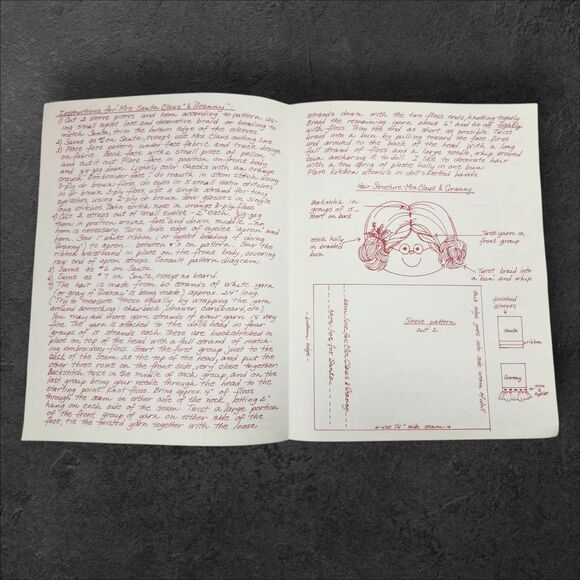 Instructions for "Mrs. Santa Claus" & "Granny":
1) Cut 2 sleeve pieces and hem according to pattern us-
ing small eyelet lace and decorative braid or beading to
match Santa; trim the bottom edge of the sleeves.
2) Same as #2 on Santa, except use Mrs. Claus cutting line.
3) Place face pattern under face fabric and trace design
on fabric. Back face with a small piece of pellon
and cut it out. Place face in position on front body
and zig-zag down. Lightly color cheeks with an orange
crayon. Embroider face: do mouth in stem stitch, using
3-ply or brown floss; do eyes in 5 small satin stitches
in brown 3-ply floss; use a single strand for tiny
eyelashes, using 2-ply or brown; sew glasses in, single
long stitches. Satin stitch nose in orange 3-ply floss.
4) Cut 2 straps out of small eyelet - 2" each. Zig-zag
them in position around face and down middle. No
hem is necessary. Turn side edge of eyelet "apron" and
hem. Sew 1" white ribbon (or eyelet beading if doing
"Granny") to apron between *'s on pattern. Sew the
ribbed waistband in place on the front body, covering
raw end of apron straps. Consult pattern diagram.
5) Same as #6 on Santa.
6) Same as #7 on Santa, except no beard.
7) The hair is made from 60 strands of white yarn
(or gray if "Granny" is being made) approx. 24" long.
(Try to "measure" these equally by wrapping the yarn
around something: shoe box, drawer, cardboard, etc.)
You may add more yarn strands if your yarn is very
fine. The yarn is attached to the doll's head in four
groups of 15 strands each. These are backstitched in
place on top of the head with a full strand of match-
ing embroidery floss. Start the first group just to the
back of the seam at the top of the head, and put the
other three rows on the front side, very close together.
Backstitch twice in the middle of each group, and on the
last group bring your needle through the head to the
starting point. Knot floss. Bring approx. 4" of floss
through the seam on either side of the neck, letting 2"
hang on each side of the seam. Twist a large portion
of the front group of yarn on either side of the
face, tie the twisted yarn together with the loose
strands down with the two floss ends, knotting tightly.
Braid the remaining yarn about 6" and tie off tightly
with floss. Trim the end as short as possible. Twist
braid into a bun by pulling toward the face first
and around to the back of the head. With a long
full strand of floss and a large needle, whip around
bun anchoring it to doll. I like to decorate hair
with a tiny sprig of plastic holly in one bun.
Place kitchen utensils in doll's knitted hands.
Hair Structure: Mrs. Claus & Granny
Backstitch in
groups of 15 -
start on back
Stick holly
in braided
bun
Twist yarn in
front group
Twist braid into
a bun and whip
pattern edge
hem line for Santa
hem line for Mrs. Claus & Granny
Sleeve pattern
cut 2
this edge goes into side seam of doll
use 1/4" side seam
finished
sleeves
Santa
ribbon
Granny
eyelet